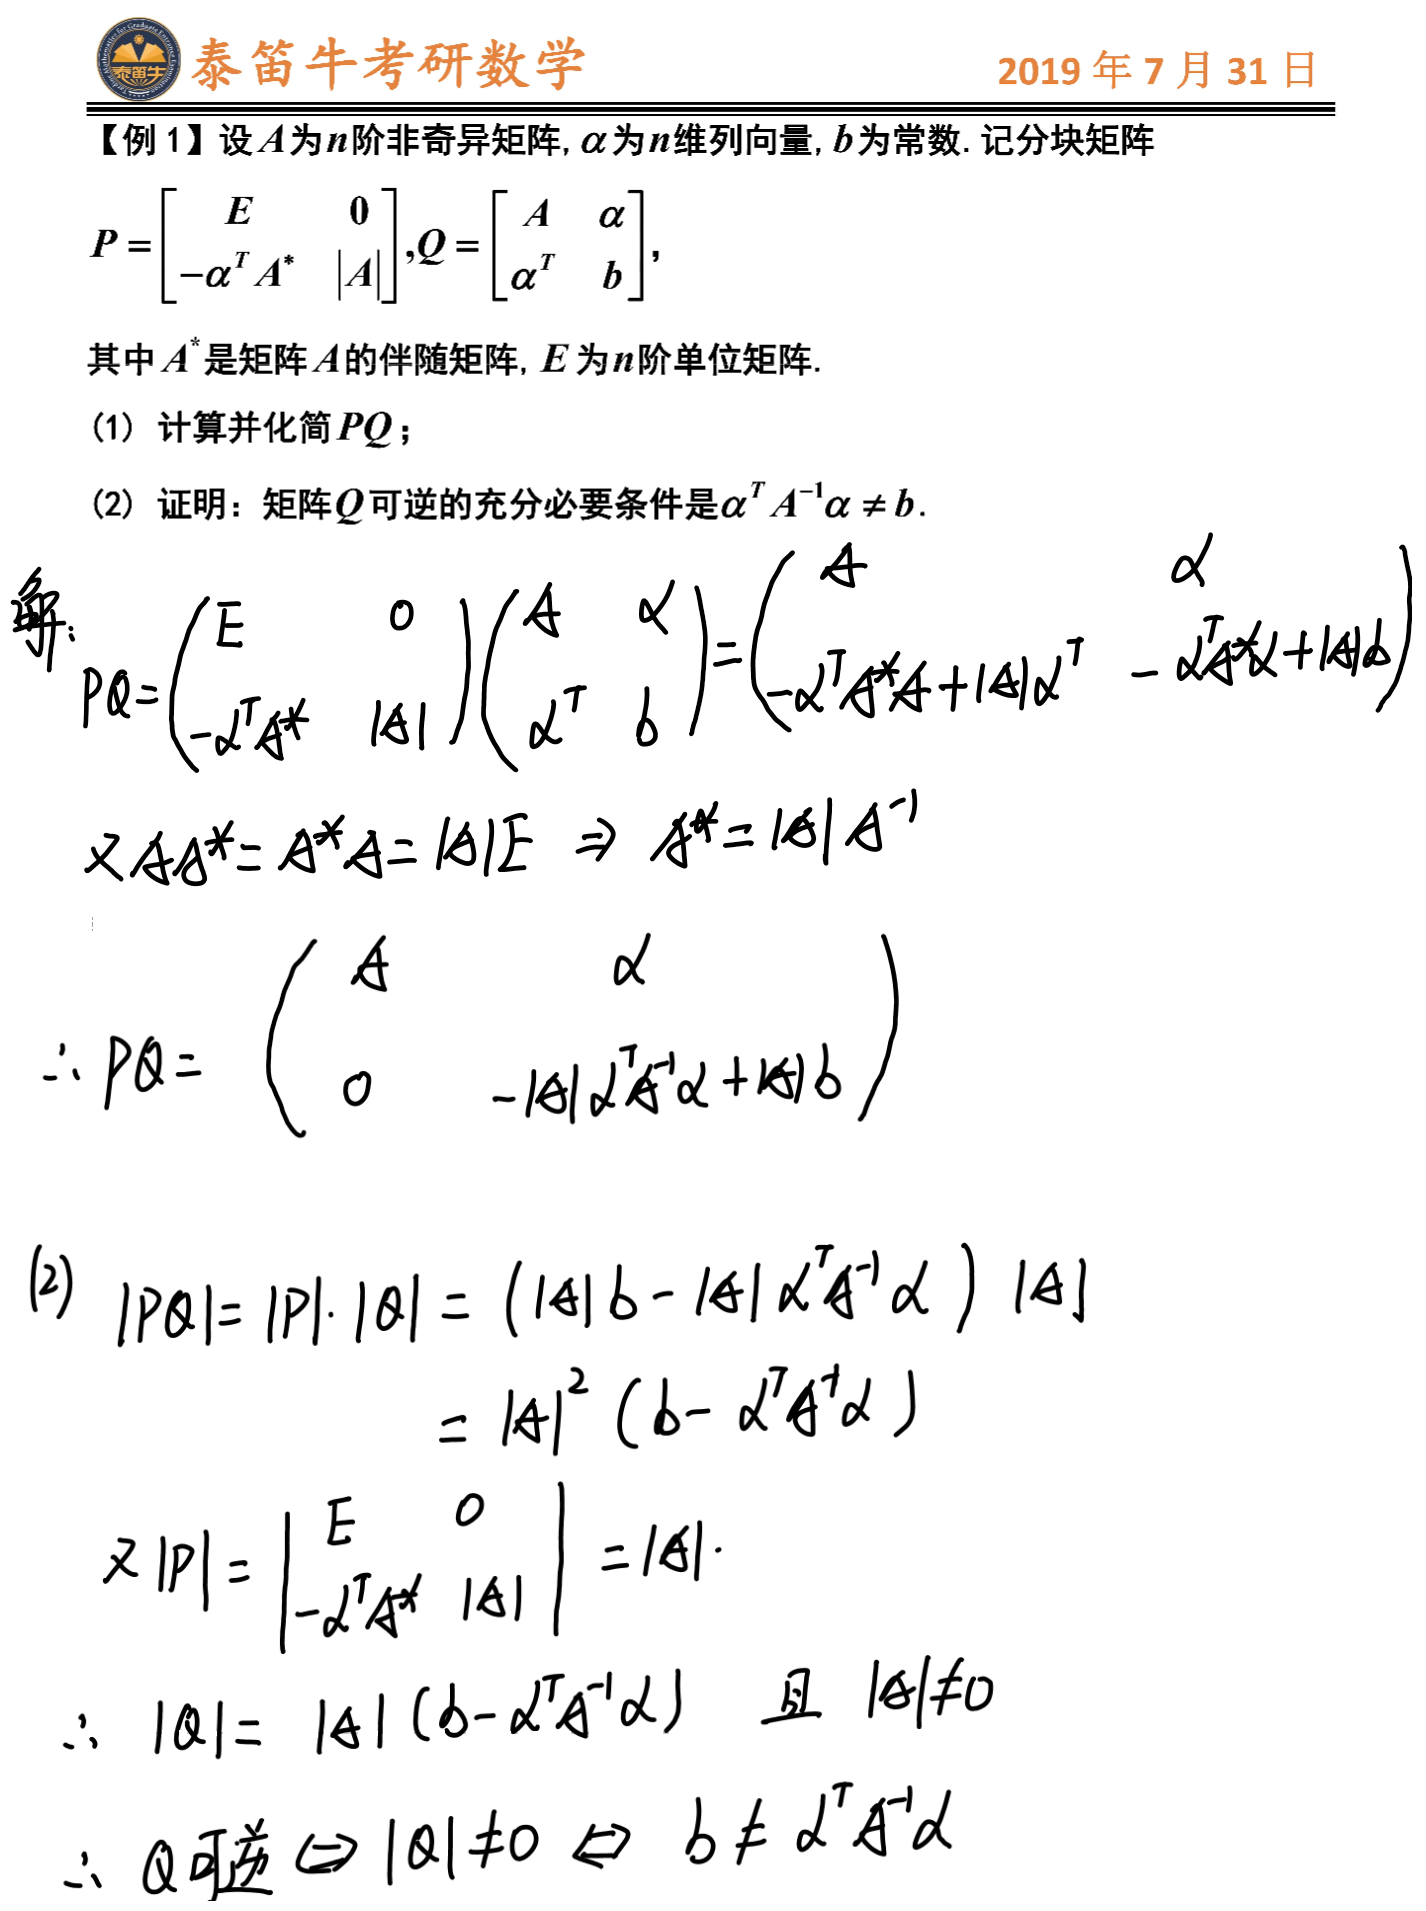 泰笛牛考研数学 2019 年 7 月 31 日
【例 1】设 A 为 n 阶非奇异矩阵, α 为 n 维列向量, b 为常数. 记分块矩阵
P = [ E 0 ; −α^T A^* |A| ], Q = [ A α ; α^T b ],
其中 A^* 是矩阵 A 的伴随矩阵, E 为 n 阶单位矩阵.
(1) 计算并化简 PQ ;
(2) 证明: 矩阵 Q 可逆的充分必要条件是 α^T A^{-1} α ≠ b .
解:
PQ = ( E 0 ; −α^T A^* |A| ) ( A α ; α^T b ) = ( A α ; −α^T A^* A + |A| α^T −α^T A^* α + |A| b )
又 AA^* = A^* A = |A|E ⇒ A^* = |A| A^{-1}
∴ PQ = ( A α ; 0 −|A| α^T A^{-1} α + |A| b )
(2) |PQ| = |P|·|Q| = ( |A| b − |A| α^T A^{-1} α ) |A|
= |A|^2 ( b − α^T A^{-1} α )
又 |P| = | E 0 ; −α^T A^* |A| | = |A| .
∴ |Q| = |A| ( b − α^T A^{-1} α ) 且 |A| ≠ 0
∴ Q 可逆 ⇔ |Q| ≠ 0 ⇔ b ≠ α^T A^{-1} α